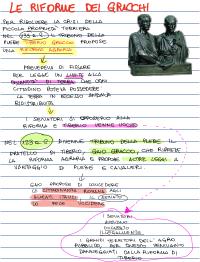 LE RIFORME DEI GRACCHI
PER RIDURRE LA CRISI DELLA
PICCOLA PROPRIETÀ TERRIERA
NEL 133 a.C. IL TRIBUNO DELLA
PLEBE TIBERIO GRACCO PROPOSE
UNA RIFORMA AGRARIA
PREVEDEVA DI FISSARE
PER LEGGE UN LIMITE ALLA
QUANTITÀ DI TERRA CHE OGNI
CITTADINO POTEVA POSSEDERE
LA TERRA IN ECCESSO ANDAVA
RIDISTRIBUITA
I SENATORI SI OPPOSERO ALLA
RIFORMA E TIBERIO VENNE UCCISO
NEL 123 a.C. DIVENNE TRIBUNO DELLA PLEBE IL
FRATELLO DI TIBERIO, GAIO GRACCO, CHE RIPRESE
LA RIFORMA AGRARIA E PROPOSE ALTRE LEGGI A
VANTAGGIO DI PLEBE E CAVALIERI.
GAIO PROPOSE DI CONCEDERE
LA CITTADINANZA ROMANA AGLI
ALLEATI ITALICI. IL SENATO
LO FECE UCCIDERE
I SENATORI
AVEVANO
OCCUPATO
ILLEGALMENTE
GRANDI TERRITORI DELL'AGRO
PUBBLICO, PER QUESTO VENIVANO
DANNEGGIATI DALLA RIFORMA DI
TIBERIO